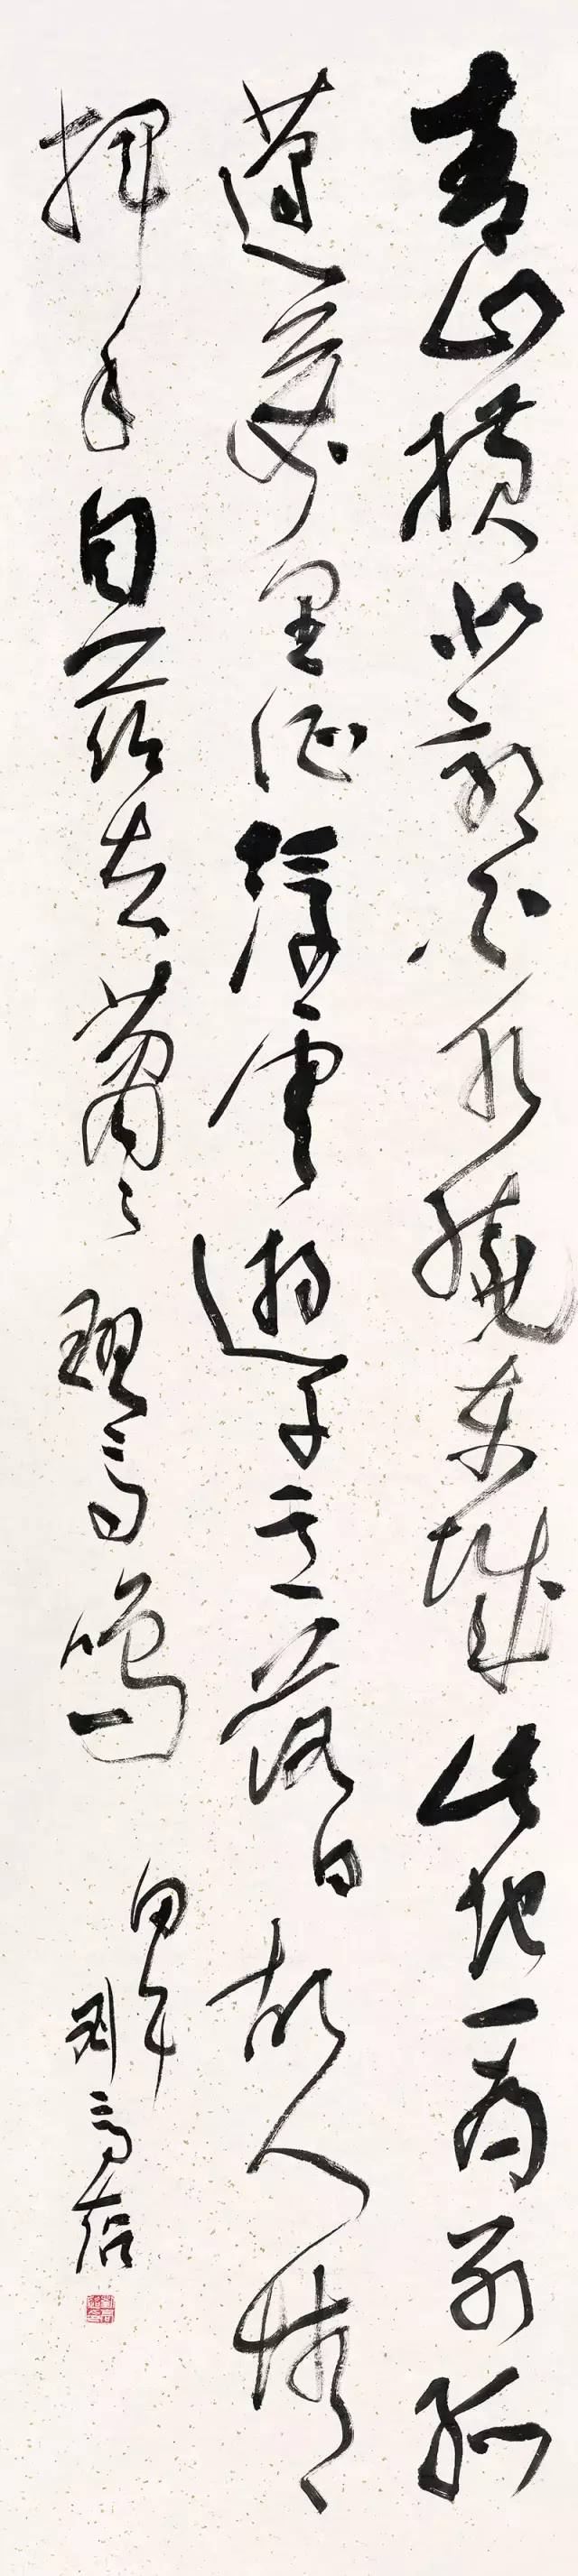 青山橫北郭白水繞東城此地一為別孤
蓬萬里征浮雲遊子意落日故人情
揮手自茲去蕭々班馬鳴
甲午
劉高